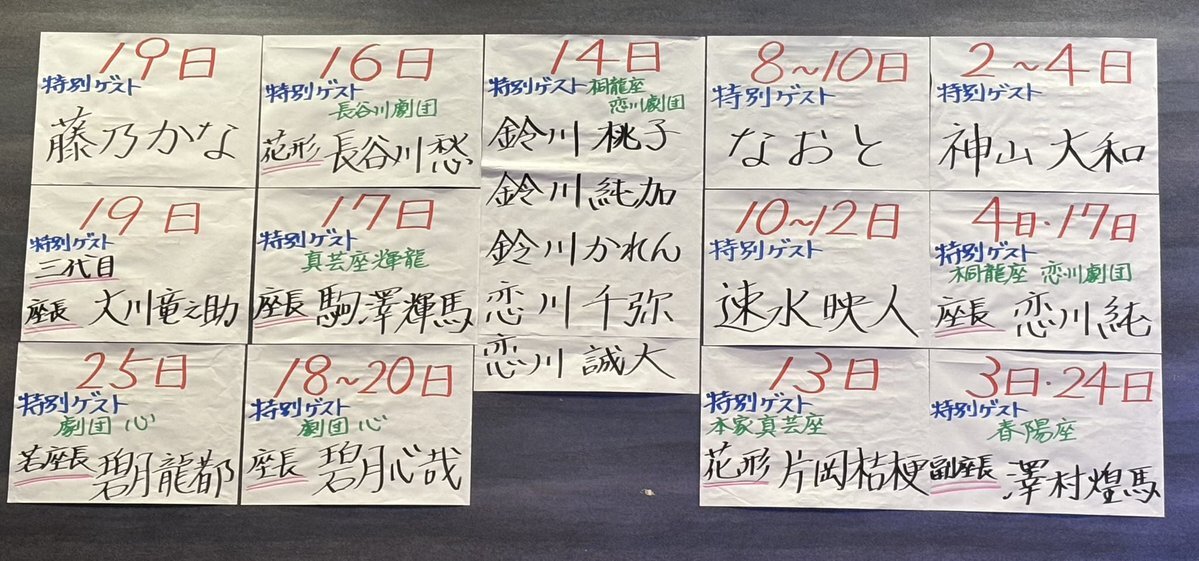 2~4日
特別ゲスト
神山大和
4日・17日
特別ゲスト
桐龍座 恋川劇団
座長 恋川純
3日・24日
特別ゲスト
春陽座
副座長 澤村煌馬
8~10日
特別ゲスト
なおと
10~12日
特別ゲスト
速水映人
13日
特別ゲスト
本家真芸座
花形 片岡桔梗
14日
特別ゲスト 桐龍座
恋川劇団
鈴川桃子
鈴川純加
鈴川かれん
恋川千弥
恋川誠大
16日
特別ゲスト
長谷川劇団
花形 長谷川愁
17日
特別ゲスト
真芸座輝龍
座長 駒澤輝馬
18~20日
特別ゲスト
劇団心
座長 碧月心哉
19日
特別ゲスト
藤乃かな
19日
特別ゲスト
三代目
座長 大川竜之助
25日
特別ゲスト
劇団心
若座長 碧月龍都